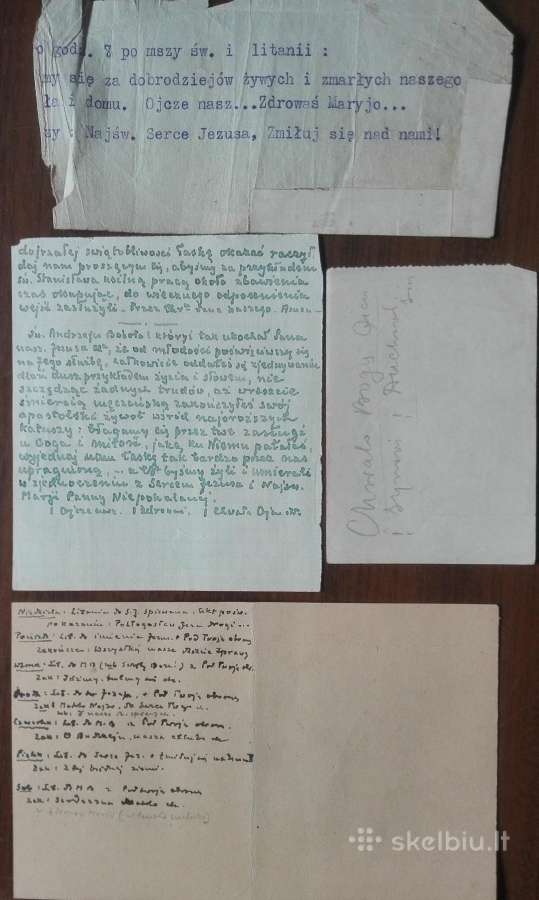 o godz. 7 po mszy św. i litanii :
my się za dobrodziejów żywych i zmarłych naszego
ła i domu. Ojcze nasz...Zdrowaś Maryjo...
zy : Najśw. Serce Jezusa, Zmiłuj się nad nami!
dojrzałej świątobliwości łaskę okazać raczył
daj nam proszącym Cię, abyśmy za przykładem
św. Stanisława pilną pracą około zbawienia
czas okupując, do wiecznego odpocznienia
wejść zasłużyli. Przez Chr. Pana naszego. Amen
Św. Andrzeju Bobolo! któryś tak ukochał Pana
nasz. Jezusa Chr, że od młodości poświęciwszy się
na Jego służbę, całkowicie oddałeś się zjednywaniu
dlań dusz przykładem życia i słowem, nie
szczędząc żadnych trudów, aż wreszcie
śmiercią męczeńską zakończyłeś swój
apostolski żywot wśród najsroższych
katuszy: błagamy Cię przez twe zasługi
u Boga i miłość, jaką ku Niemu pałałeś,
wyjednaj nam łaskę tak bardzo przez nas
upragnioną, ... a byśmy żyli i umierali
w zjednoczeniu z Sercem Jezusa i Najśw.
Maryi Panny Niepokalanej.
1 Ojcze nasz. 1 Zdrowaś. 1 Chwała Ojcu
Chwała Bogu Ojcu
i Synowi i Duchowi Ś.
Niedziela: Litania do S.J. śpiewana. Akt pośw.
Poniedz: Lit. do imienia Jezus + Pod Twoją obronę
zakończ: Wszystkie nasze dzienne sprawy
Wtorek: Lit. do M.B z Pod Twoją
Zak:
Środa: Lit. do św Józefa, + Pod Twoją obronę
Czwartek: Lit. do M.B z Pod Twoją obron.
Zak: O
Piątek: Lit. do Serca Jez. + Zmiłuj się nad nami
Zak: Z tej biednej ziemi.
Sob: Lit. do M B z Pod Twoją obronę
Zak: Serdeczna Matko
skelbiu.lt